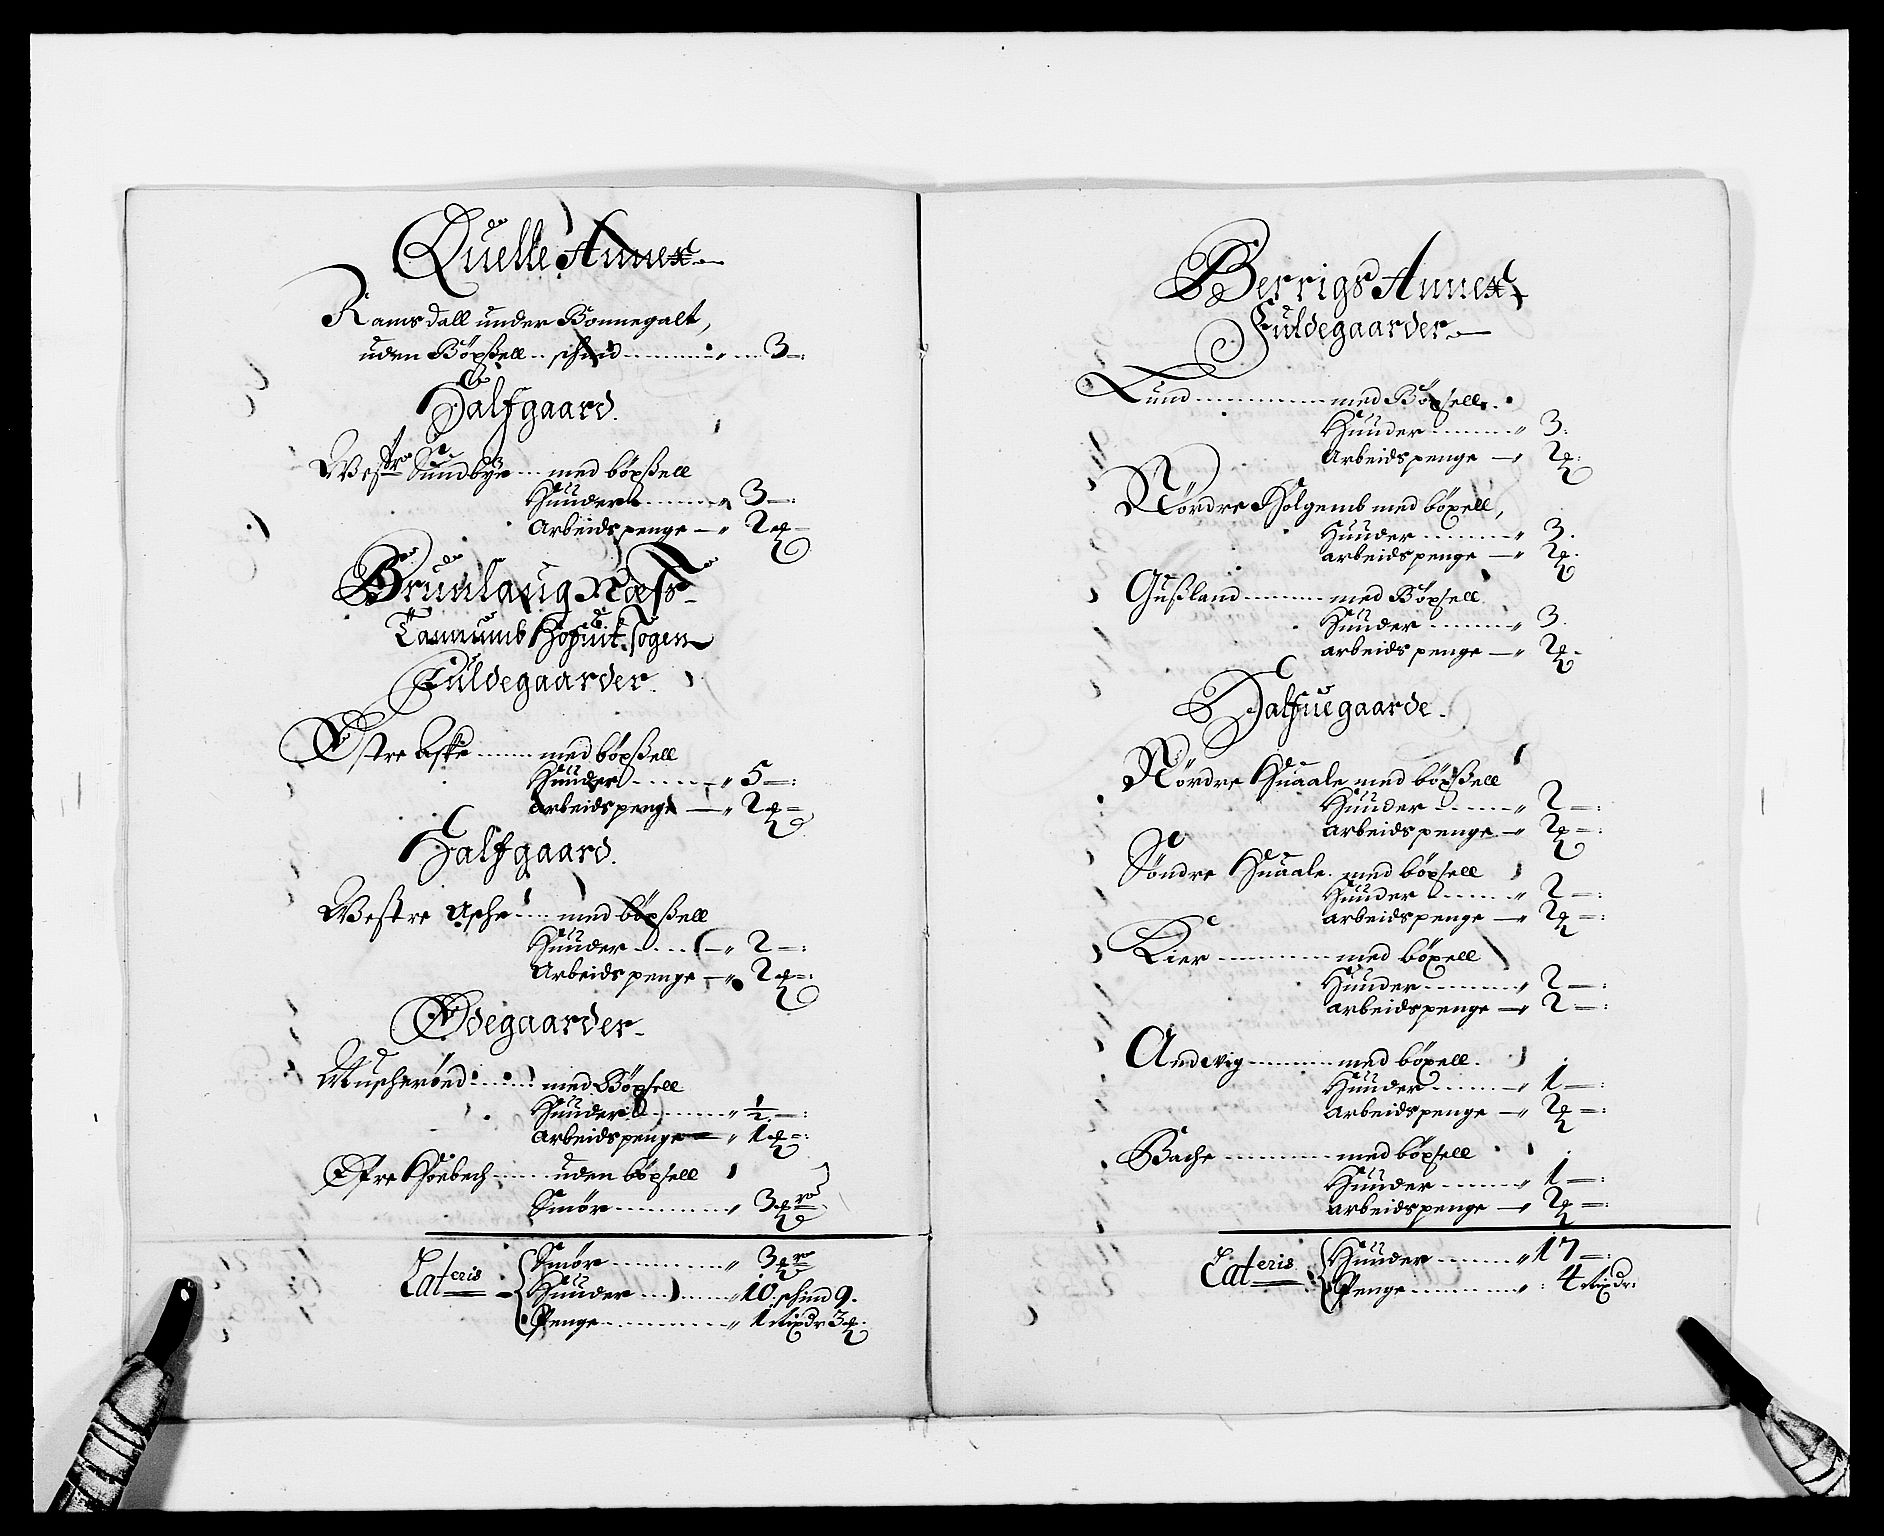 Quelle Annex
Ramsdall under Bonnegalt,
uden Böxßell .. schind ........ „ .... 3 –:
Halfgaard.
Vestre Sundbÿe .... med böxßell
Hunder ........ „ 3 –:
Arbeidspenge – „ 2 ₰ –
Brunlaug Næss
Tannumb Hofuit sogen
Fuldegaarder.
Østre Aske ...... med böxßell
Hunder ........ „ 5 –:
Arbeidspenge – „ 2 ₰ –
Halfgaard.
Vestre Asche .... med böxßell
Hunder ...... „ 2 –:
Arbeidspenge – „ 2 ₰ –:
Ødegaarder
Muscheröed ...... med Böxsell
Hunder ........ „ ½ –:
Arbeidspenge – „ 1 ₰ –:
Østre Höebech ...... uden böxsell
Smör .......... „ 3 ₰r
Lateris Smör .......... „ 3 ₰r
Hunder ........ „ 10. schind 9.
Penge .......... „ 1 rixdr 3 ₰.
Berrigs Annex
Fuldegaarder
Lund .......... med Böxsell.
Hunder ........ „ 3.
Arbeidspenge – „ 2 ₰
Nördre Holgemb med böxell,
Hunder ........ „ 3.
arbeidspenge – „ 2 ₰.
Gußland ........ med Böxsell
Hunder ........ „ 3.
arbeidspenge – „ 2 ₰ –
Halfuegaarde.
Nördre Huaale med böxßell
Hunder ........ „ 2 –:
arbeidspenge – „ 2 ₰ –:
Söndre Huaale. med böxsell
Hunder ........ „ 2 –:
arbeidspenge – „ 2 ₰ –:
Kier .......... med böxell
Hunder ........ „ 2 –:
arbeidspenge – „ 2 –:
Andwig ........ med böxell.
Hunder ........ „ 1 –:
arbeidspenge – „ 2 ₰ –:
Bache .......... med böxsell
Hunder ........ „ 1 –:
arbeidspenge – „ 2 ₰ –:
Lateris Hunder ........ „ 17 –:
Penge .......... „ : 4 rixdr: